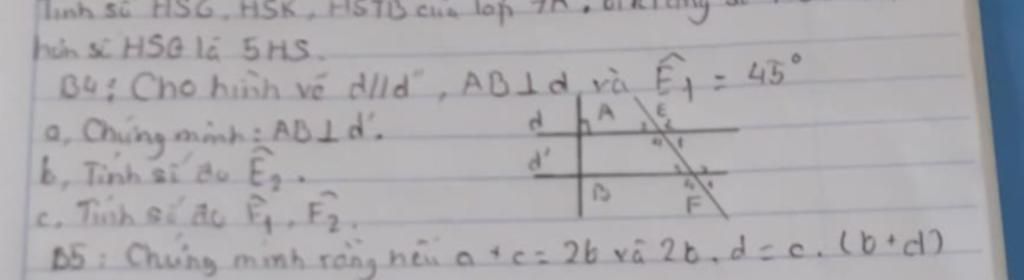 Tính số HSG, HSK, HSTB của lớp 7A
hơn số HSG là 5HS.
B4: Cho hình vẽ d//d', AB⊥d và Ê₁ = 45°
a, Chứng minh: AB⊥d'.
b, Tính số đo Ê₂.
c, Tính số đo F̂₁, F̂₂.
d A E
d' B F
B5: Chứng minh rằng nếu a + c = 2b và 2b.d = c.(b+d)